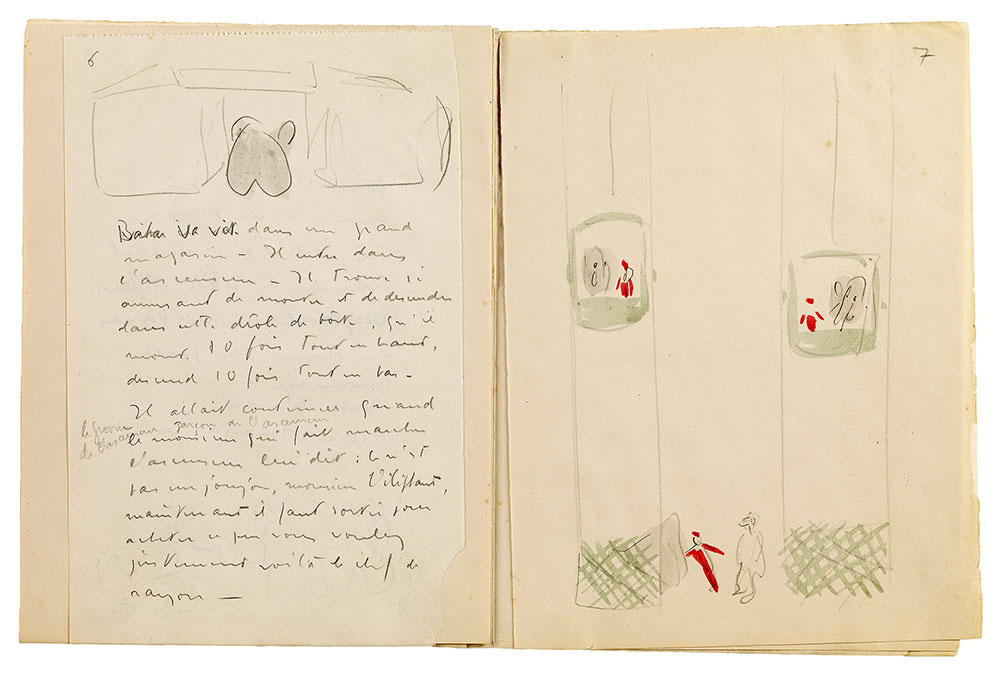 6
Babar va vite dans un grand
magasin – Il entre dans
l'ascenseur – Il trouve si
amusant de monter et de descendre
dans cette drôle de boîte, qu'il
monte 10 fois tout en haut,
descend 10 fois tout en bas –
Il allait continuer quand
le groom garçon de l'ascenseur
de l'ascenseur
le monsieur qui fait marcher
l'ascenseur lui dit : ce n'est
pas un joujou, monsieur l'éléphant,
maintenant il faut sortir pour
acheter ce que vous voulez
justement voilà le chef de
rayon –
7